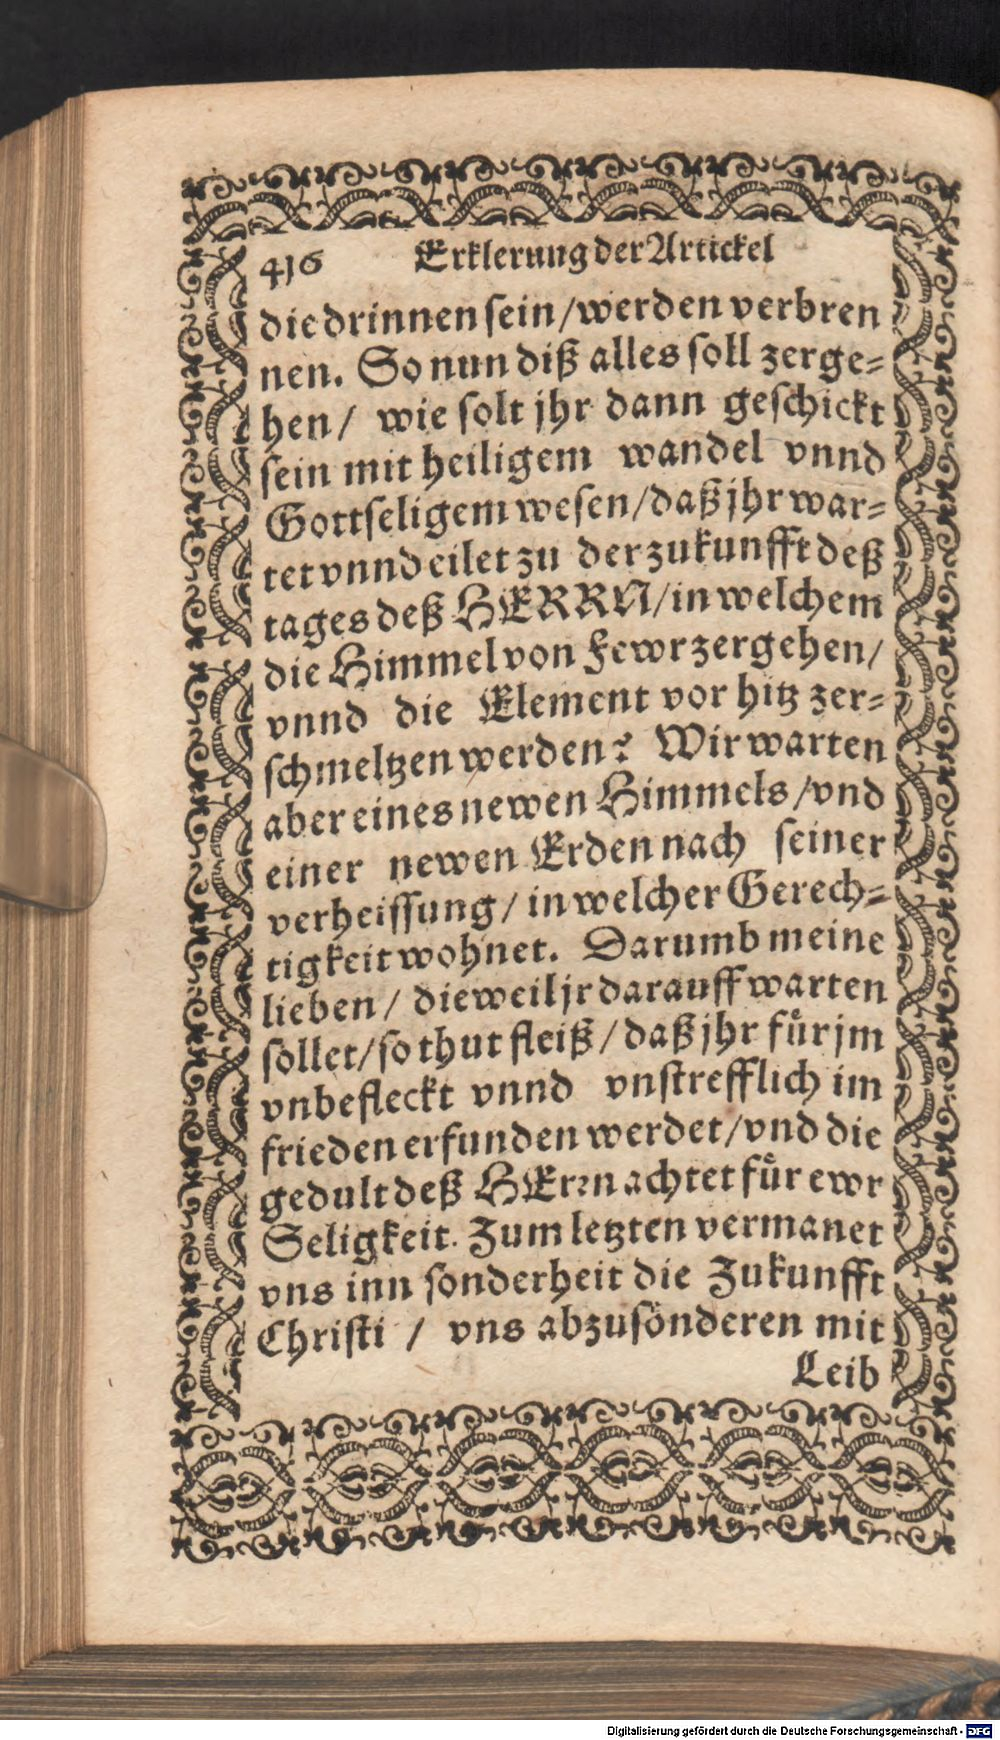 416 Erklerung der Artickel
die drinnen sein / werden verbren
nen. So nun diß alles soll zerge-
hen / wie solt jhr dann geschickt
sein mit heiligem wandel vnnd
Gottseligem wesen / daß jhr war-
tet vnnd eilet zu der zukunfft deß
tages deß HERRN / in welchem
die Himmel von Fewr zergehen /
vnnd die Element vor hitz zer-
schmeltzen werden? Wir warten
aber eines newen Himmels / vnd
einer newen Erden nach seiner
verheissung / in welcher Gerech-
tigkeit wohnet. Darumb meine
lieben / dieweil jr darauff warten
sollet / so thut fleiß / daß jhr fuͤr jm
vnbefleckt vnnd vnstrefflich im
frieden erfunden werdet / vnd die
gedult deß HErꝛn achtet fuͤr ewr
Seligkeit. Zum letzten vermanet
vns inn sonderheit die Zukunfft
Christi / vns abzusoͤnderen mit
Leib
Digitalisierung gefördert durch die Deutsche Forschungsgemeinschaft - DFG